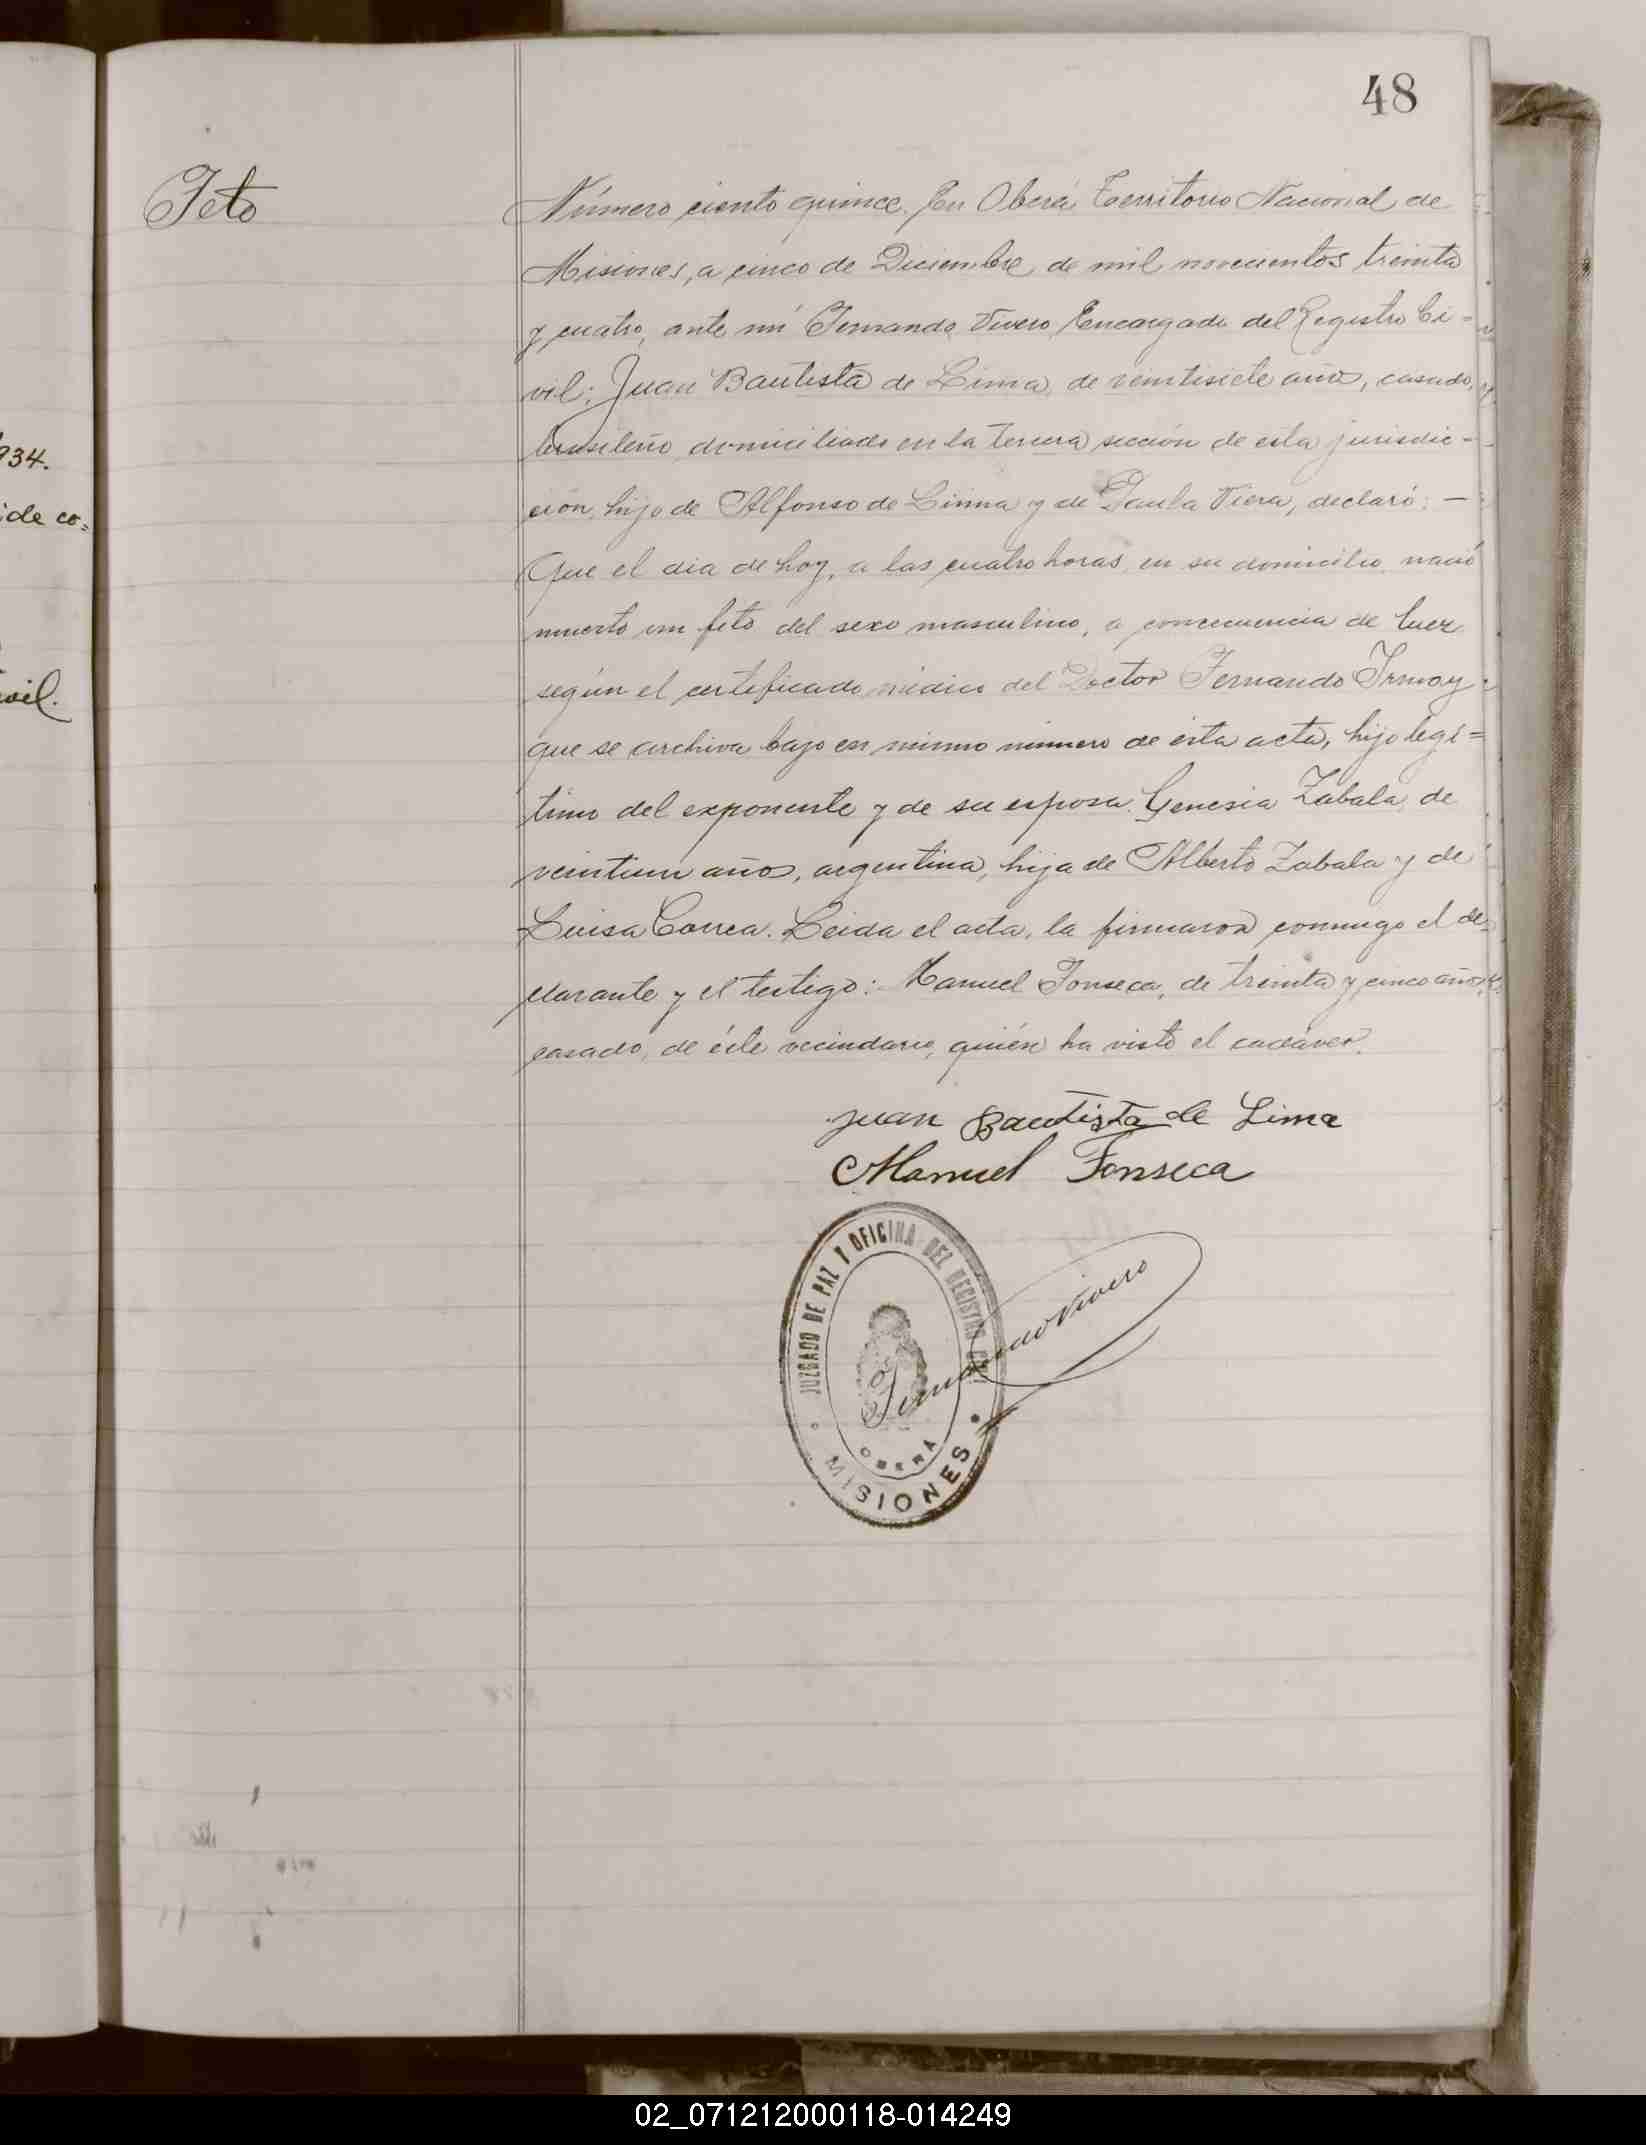 48
934.
ide co=
vil.
Feto
Número ciento quince. En Oberá Territorio Nacional de
Misiones, a cinco de Diciembre de mil novecientos treinta
y cuatro, ante mí Fernando Vivero Encargado del Registro Ci=
vil; Juan Bautista de Lima, de veintisiete años, casado,
brasileño domiciliado en la tercera sección de esta jurisdic-
ción, hijo de Alfonso de Lima y de Paula Viera, declaró: —
Que el dia de hoy, a las cuatro horas, en su domicilio nació
muerto un feto del sexo masculino, a concecuencia de
según el certificado médico del Doctor Fernando
que se archiva bajo en mismo número de ésta acta, hijo legí=
timo del exponente y de su esposa Genesia Zabala, de
veintiun años, argentina, hija de Alberto Zabala y de
Luisa Correa. Leida el acta, la firmaron conmigo el de=
clarante y el testigo: Manuel Fonseca, de treinta y cinco años,
casado, de éste vecindario, quién ha visto el cadáver.
Juan Bautista de Lima
Manuel Fonseca
JUZGADO DE PAZ Y OFICINA DEL REGISTRO CIVIL
Fernando Vivero
OBERÁ
MISIONES
02_071212000118-014249